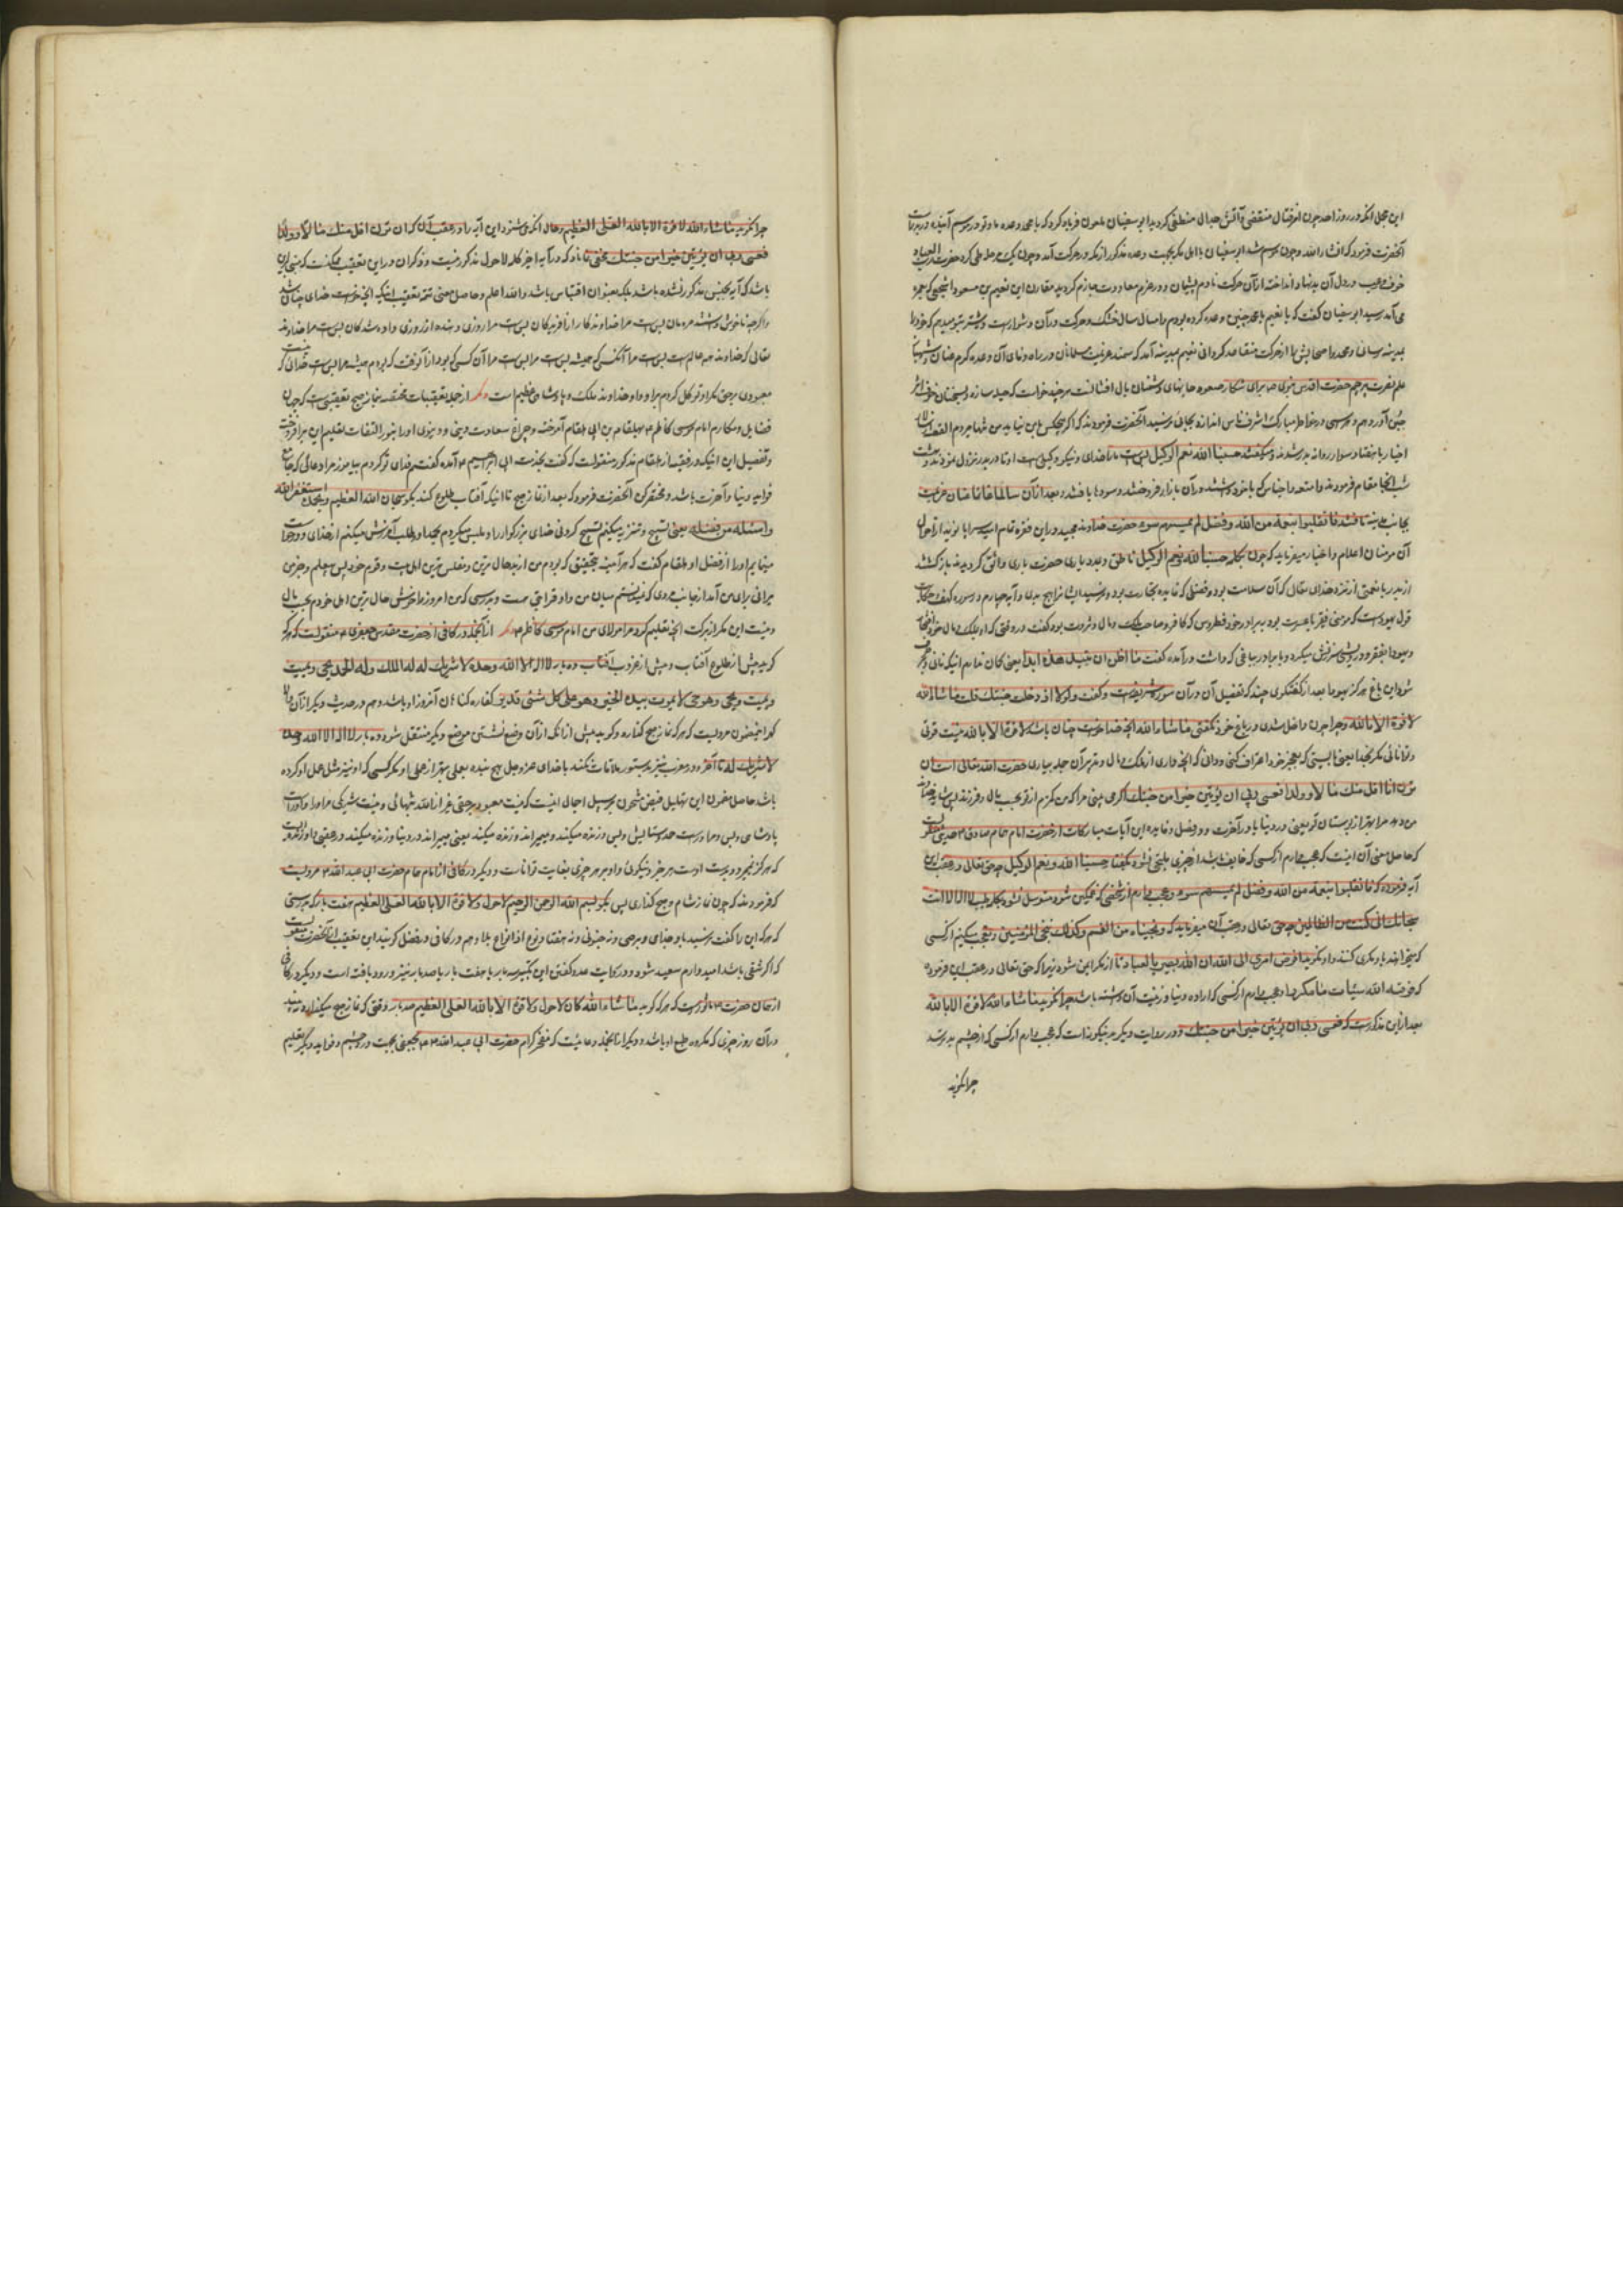 این مجمل آنکه در روز احد چون امر قتال منقضی و آتش جدال منطفی گردید ابو سفیان ملعون فریاد کرد که یا محمد وعده ما و تو در موسم آینده در بدر است
آنحضرت فرمود که انشاء الله و چون موسم شد ابو سفیان با اهل مکه بجهت وعده مذکور از مکه در حرکت آمد و چون یک مرحله طی کرد حضرت رب العباد
خوف و رعب در دل آن انداخته از آن حرکت نادم و پشیمان و در عزم معاودت جازم گردید مقارن این نعیم بن مسعود اشجعی که
می آمد رسید ابو سفیان گفت که یا نعیم با محمد چنین وعده کرده بودم و امسال سال خشک و حرکت در آن دشوار است شتر بتو میدهم که خود را
بمدینه رسانی و محمد را و اصحابش را از حرکت متقاعد گردانی نعیم بمدینه آمد که سمند عزیمت مسلمانان در راه وفای آن وعده گرم عنان
حضرت اقدس نبوی برای شکار صعوه جانهای دشمنان بال افشان است هر چند خواست که حیله سازد و بسخنان خوف اثر
آورد وهم و در خاطر مبارک اشرف اندازد بجائی نرسید آنحضرت فرمودند که اگر هیچکس با من نیاید من تنها میروم القصه
با هفتاد سوار روانه بدر شدند و میگفتند حسبنا الله و نعم الوکیل بس است ما را خدای و نیکو وکیل است او تا در بدر نزول نمودند و هشت
شب آنجا مقام فرمودند و امتعه و اجناس که با خود داشتند در آن بازار فروختند و سودها یافتند و بعد از آن سالما غانما عنان عزیمت
بجانب مدینه تافتند فانقلبوا بنعمة من الله وفضل لم یمسسهم سوء حضرت خداوند مجید در این فقره
آن مومنان اعلام و اخبار میفرماید که چون بکلمه حسبنا الله ونعم الوکیل ناطق و بمدد یاری حضرت باری واثق گردیدند باز گشتند
از بدر با نعمتی از نزد خدای متعال که آن سلامت بود و فضلی که فایده تجارت بود و نرسید ایشانرا هیچ بدی و آیه چهارم در سوره کهف حکایت
قول یهود است که مومنی فقیر با عسرت بود ببرادر خود قطروس که کافر و صاحب ملک و مال و ثروت بود گفت در وقتی که او بملک و مال خود
و یهودا بفقر و درویشی سرزنش میکرد و با برادر بباغی که داشت در آمده گفت ما اظن ان تبید هذه ابدا یعنی گمان ندارم اینکه فانی
شود این باغ هرگز یهودا بعد از گفتگوی چند که تفصیل آن در آن سوره شریفه است و گفت ولولا اذ دخلت جنتک قلت ما شاء الله
لا قوة الا بالله و چرا چون داخل شدی در باغ خود نگفتی ما شاء الله آنچه خدا خواست چنان باشد لا قوة الا بالله نیست قوتی
و توانائی مگر بخدا یعنی بایستی که بعجز خود اعتراف کنی و دانی که آنچه داری از ملک و مال و تدبیر آن جمله بیاری حضرت الله تعالی است ان
ترن انا اقل منک مالا وولدا فعسی ربی ان یؤتین خیرا من جنتک اگر می بینی مرا که من کمترم از تو بحسب مال و فرزند پس شاید
من دهد مرا بهتر از بوستان تو یعنی در دنیا یا در آخرت و در فضل و فایده این آیات مبارکات از حضرت امام همام صادق حدیثی
که حاصل معنی آن اینست که عجب دارم از کسی که خایف باشد از چیزی بگفتن حسبنا الله ونعم الوکیل چه حق تعالی در عقب این
آیه فرموده که فانقلبوا بنعمة من الله وفضل لم یمسسهم سوء و عجب دارم از شخصی که غمگین شود و متوسل نشود بکلمه طیبه لا اله الا انت
سبحانک انی کنت من الظالمین چه حق تعالی در عقب آن میفرماید که ونجیناه من الغم وکذلک ننجی المؤمنین و تعجب میکنم از کسی
که با او مکری کنند و او نگوید افوض امری الی الله ان الله بصیر بالعباد تا از مکر ایمن شود زیرا که حق تعالی در عقب این فرموده
که فوقیه الله سیئات ما مکروا و عجب دارم از کسی که اراده دنیا و زینت آن داشته باشد چرا نگوید ما شاء الله لا قوة الا بالله
بعد از این مذکور است که فعسی ربی ان یؤتین خیرا من جنتک و در روایت دیگر نیز چنین است که عجب دارم از کسی که از چشم بد ترسد
چرا نگوید
چرا نگوید ما شاء الله لا قوة الا بالله العلی العظیم و حال آنکه می شنود این آیه را و در عقب آن که ان ترن انا اقل منک مالا وولدا
فعسی ربی ان یؤتین خیرا من جنتک مخفی نماند که در آیه اخیر کلمه لاحول مذکور نیست و ذکر آن در این تعقیب ممکنست که مبنی بر این
باشد که آیه بجنس مذکور نشده باشد بلکه بعنوان اقتباس باشد والله اعلم و حاصل معنی تتمه تعقیب اینکه آنچه خواست خدای چنان شد
و اگر چه ناخوش داشتند مردمان بس است مرا خداوندگار از آفریدگان بس است مرا روزی دهنده از روزی داده شدگان بس است مرا خداوند
تعالی که خداوند همه عالم است بس است مرا آنکس که همیشه بس است مرا بس است مرا آن کسی که بود از آنوقت که بودم همیشه مرا بس است خدائی که
معبودی بحق مگر او توکل کردم بر او و او خداوند ملک و پادشاهی عظیم است دیگر از جمله تعقیبات مختصه بنماز صبح تعقیبی است که جهان
فضایل و مکارم امام موسی کاظم بهلقام بن ابی هلقام آموخت و چراغ سعادت دینی و دنیوی او را بنور التفات تعلیم این بر افروخت
و تفصیل این اینکه در فقیه از هلقام مذکور منقولست که گفت بخدمت ابی ابراهیم آمده گفتم فدای تو گردم بیاموز مرا دعائی که جامع
فواید دنیا و آخرت باشد و مختصر کن آنحضرت فرمود که بعد از نماز صبح تا آنکه آفتاب طلوع کند بگو سبحان الله العظیم وبحمده استغفر الله
واسئله من فضله یعنی تسبیح و تنزیه میکنم تسبیح کردنی خدای بزرگوار را و متلبس میگردم بحمد او و طلب آمرزش میکنم از خدای و درخواست
مینمایم او را از فضل او هلقام گفت که هر آینه بتحقیق که بودم من از بدحال ترین و مفلس ترین اهل بیت و قوم خود پس نمیدانستم
میراثی برای من آمد از جانب مردی که نمیدانستم میان من و او قرابتی هست و بدرستی که من امروز از خوش حال ترین اهل خودم بحسب مال
و نیست این مگر از برکت آنچه تعلیم کرد مرا مولای من امام موسی کاظم دیگر از آنجمله در کافی از حضرت مقدس جعفری منقولست که هر که
گوید پیش از طلوع آفتاب و پیش از غروب آفتاب ده بار لا اله الا الله وحده لا شریک له له الملک وله الحمد یحیی ویمیت
ویمیت ویحیی وهو حی لا یموت بیده الخیر وهو علی کل شئ قدیر کفاره گناهان آنروز او باشد و هم در حدیث دیگر از آن
مرویست که هر که نماز صبح گذارده و گوید پیش از آنکه از آن وضع نشستن بوضع دیگر منتقل شود ده بار لا اله الا الله وحده
لا شریک له تا آخر و در مغرب نیز بدستور ملاقات نکند با خدای عز وجل هیچ بنده بعملی بهتر از عمل او مگر کسی که او نیز مثل عمل او کرده
باشد حاصل مضمون این تهلیل فیض مشحون بر سبیل اجمال اینست که نیست معبود بحقی غیر از الله بتنهائی و نیست شریکی مر او را و او راست
پادشاهی و بس و مر او راست حمد و ستایش و بس و زنده میکند و میمیراند و زنده میکند یعنی میمیراند در دنیا و زنده میکند در عقبی و او زنده ایست
که هرگز نمیرد و بدست اوست هر خیر و نیکوئی و او بر هر چیزی بغایت تواناست و دیگر در کافی از امام همام حضرت ابی عبد الله مرویست
که فرمودند که چون نماز شام و صبح گذاری پس بگو بسم الله الرحمن الرحیم لا حول ولا قوة الا بالله العلی العظیم هفت بار که بدرستی
که هر که این را گفت نرسید باو جذامی و برصی و نه جنونی و نه هفتاد نوع از انواع بلا و هم در کافی در فضل گوینده این تعقیب از آنحضرت
که اگر شقی باشد امیدوارم سعید شود و در روایت عدد گفتن این سه بار یا هفت بار یا صد بار نیز ورود یافته است و دیگر در کافی
از همان حضرت ماثور است که هر که گوید ما شاء الله کان لا حول ولا قوة الا بالله العلی العظیم صد بار وقتی که نماز صبح میگذارد نبیند
در آن روز چیزی که مکروه طبع او باشد و دیگر از آنجمله دعائیست که حضرت ابی عبد الله بمحمد جعفی بجهت درد چشم و فواید دیگر تعلیم